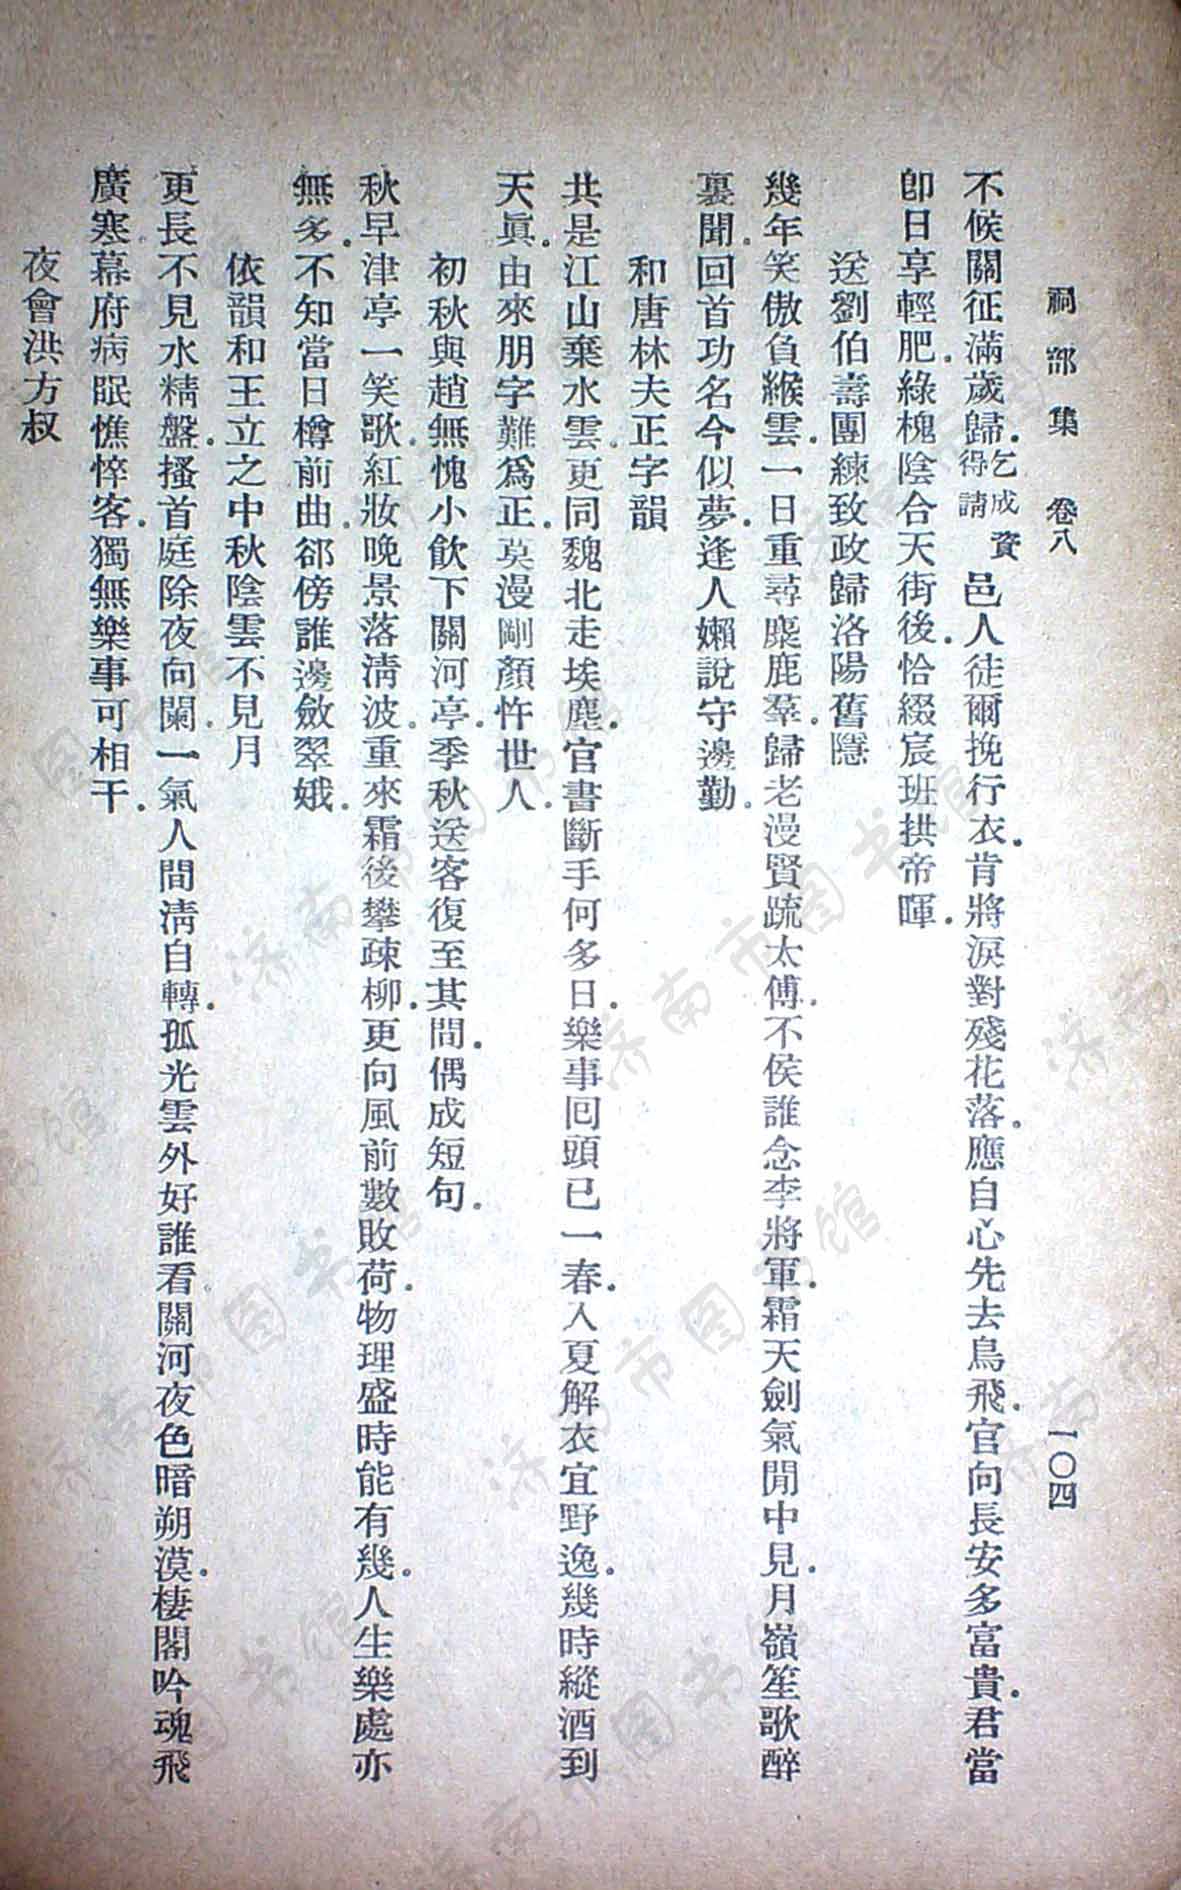 祠部集 卷八 一〇四
不候關征滿歲歸。乞成資得請邑人徒爾挽行衣。肯將淚對殘花落。應自心先去鳥飛。官向長安多富貴。君當
卽日享輕肥。綠槐陰合天街後。恰綴宸班拱帝暉。
送劉伯壽團練致政歸洛陽舊隱
幾年笑傲負緱雲。一日重尋麋鹿羣。歸老漫賢疏太傅。不侯誰念李將軍。霜天劍氣閒中見。月嶺笙歌醉
裏聞。回首功名今似夢。逢人嬾說守邊勤。
和唐林夫正字韻
共是江山棄水雲。更同魏北走埃塵。官書斷手何多日。樂事回頭已一春。入夏解衣宜野逸。幾時縱酒到
天眞。由來朋字難爲正。莫漫剛顏忤世人。
初秋與趙無愧小飲下關河亭。季秋送客復至其間。偶成短句。
秋早津亭一笑歌。紅妝晚景落清波。重來霜後攀疎柳。更向風前數敗荷。物理盛時能有幾。人生樂處亦
無多。不知當日樽前曲。郤傍誰邊斂翠娥。
依韻和王立之中秋陰雲不見月
更長不見水精盤。搔首庭除夜向闌。一氣人間清自轉。孤光雲外好誰看。關河夜色暗朔漠。棲閣吟魂飛
廣寒。幕府病眠憔悴客。獨無樂事可相干。
夜會洪方叔
濟南市图书馆